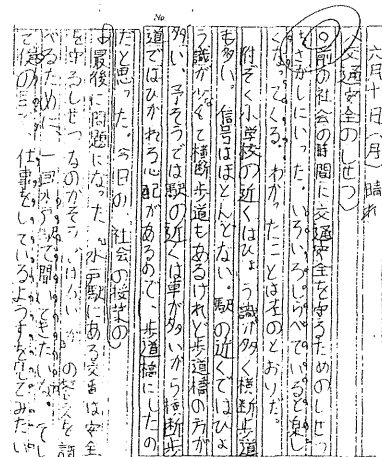 No
六月十日(月)晴れ
交通安全のしせつ
前の社会の時間に交通安全を守るためのしせつ
をさがしにいった。いろいろしらべていると楽し
くなってくる。わかったことは左のとおりだ。
附ぞく小学校の近くはひょう識が多く横断歩道
も多い。信号はほとんどない。駅の近くではひょ
う識が少なくて横断歩道もあるけれど歩道橋の方が
多い。予そうでは駅の近くは車が多いから横断歩
道ではひかれる心配があるので、歩道橋にしたの
だと思った。今日の、社会の授業の
最後に問題になった、水戸駅にある交番は安全
を守るしせつなのか
べるために、一回
て後の 仕事をしているようすを見てみたい